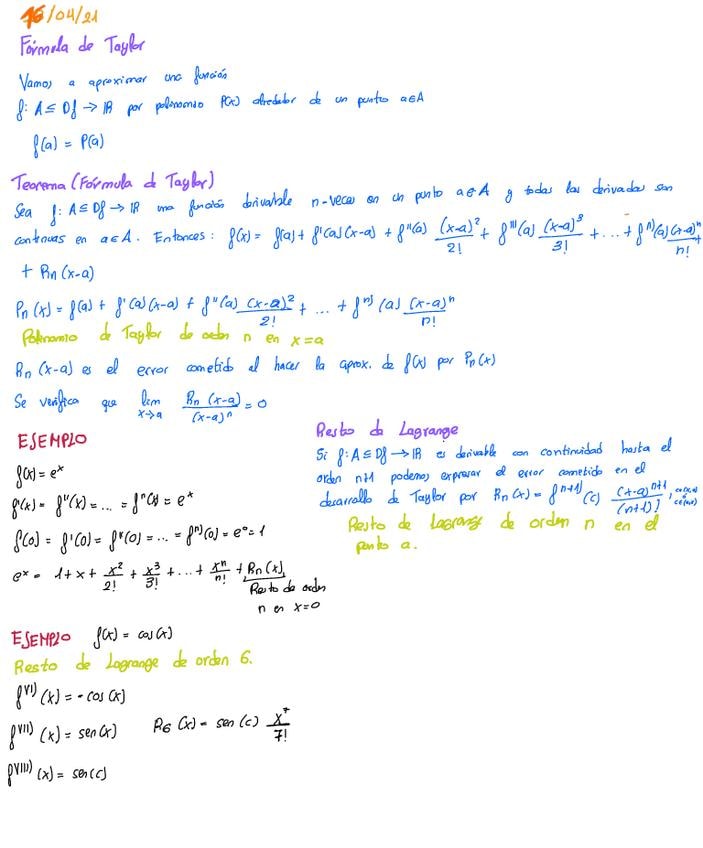 16/04/21
Fórmula de Taylor
Vamos a aproximar una función
f: A ⊆ Df → IR por polinomio P(x) alrededor de un punto a∈A
f(a) = P(a)
Teorema (Fórmula d Taylor)
Sea f: A ⊆ Df → IR una función derivable n-veces en un punto a∈A y todas las derivadas son
continuas en a∈A. Entonces: f(x) = f(a) + f'(a)(x-a) + f''(a) (x-a)²/2! + f'''(a) (x-a)³/3! + ... + fⁿ⁾(a)(x-a)ⁿ/n! +
+ Rn (x-a)
Pn (x) = f(a) + f'(a)(x-a) + f''(a) (x-a)²/2! + ... + fⁿ⁾(a) (x-a)ⁿ/n!
Polinomio de Taylor de orden n en x=a
Rn (x-a) es el error cometido al hacer la aprox. de f(x) por Pn(x)
Se verifica que lim x→a Rn (x-a)/(x-a)ⁿ = 0
EJEMPLO
f(x) = eˣ
f'(x) = f''(x) = ... = fⁿ(x) = eˣ
f(0) = f'(0) = f''(0) = ... = fⁿ⁾(0) = e⁰ = 1
eˣ = 1 + x + x²/2! + x³/3! + ... + xⁿ/n! + Rn(x)
Resto de orden
n en x=0
Resto de Lagrange
Si f: A ⊆ Df → IR es derivable con continuidad hasta el
orden n+1 podemos expresar el error cometido en el
desarrollo de Taylor por Rn(x) = fⁿ⁺¹⁾(c) (x-a)ⁿ⁺¹/(n+1)!,
Resto de Lagrange de orden n en el
punto a.
EJEMPLO f(x) = cos(x)
Resto de Lagrange de orden 6.
f^VI)(x) = -cos(x)
f^VII)(x) = sen(x) R6 (x) = sen(c) x⁷/7!
f^VIII)(x) = sen(c)